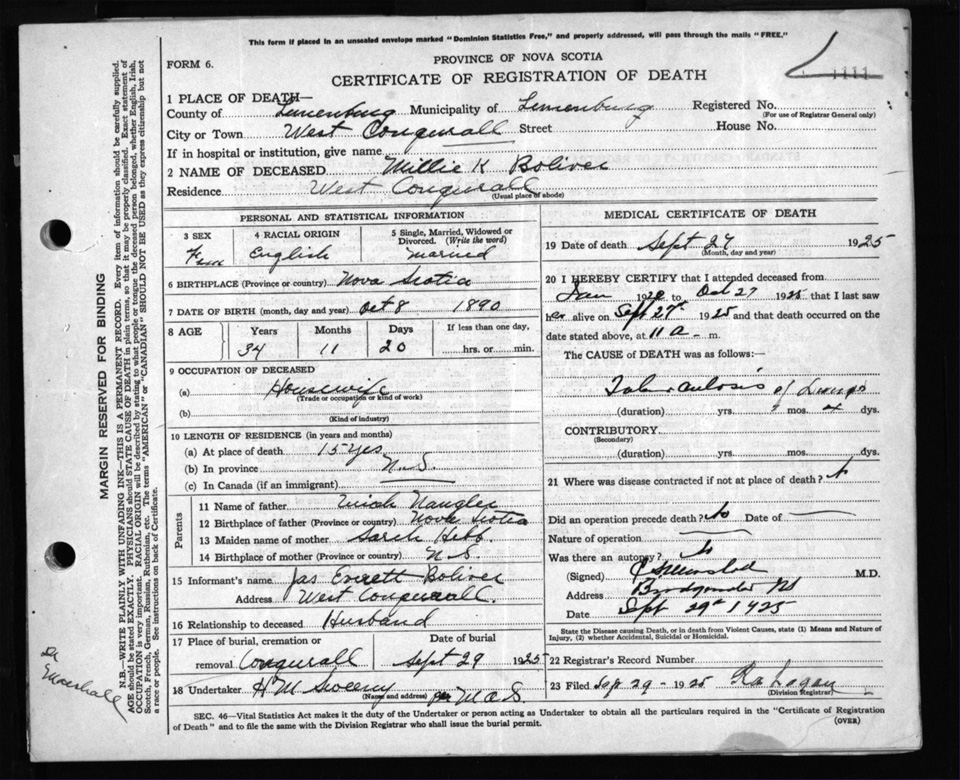 This form if placed in an unsealed envelope marked "Dominion Statistics Free," and properly addressed, will pass through the mails "FREE."
FORM 6.
PROVINCE OF NOVA SCOTIA
CERTIFICATE OF REGISTRATION OF DEATH
1111
1 PLACE OF DEATH—
County of Lunenburg Municipality of Lunenburg Registered No.
(For use of Registrar General only)
City or Town West Conqurall Street House No.
If in hospital or institution, give name
2 NAME OF DECEASED Millie K Boliver
Residence West Conqurall
(Usual place of abode)
PERSONAL AND STATISTICAL INFORMATION
3 SEX Fem
4 RACIAL ORIGIN English
5 Single, Married, Widowed or Divorced. (Write the word) married
6 BIRTHPLACE (Province or country) Nova Scotia
7 DATE OF BIRTH (month, day and year) Oct 8 1890
8 AGE Years Months Days If less than one day,
34 11 20 hrs. or min.
9 OCCUPATION OF DECEASED
(a) Housewife
(Trade or occupation or kind of work)
(b)
(Kind of industry)
10 LENGTH OF RESIDENCE (in years and months)
(a) At place of death 15 yrs
(b) In province N.S.
(c) In Canada (if an immigrant)
Parents
11 Name of father Nangler
12 Birthplace of father (Province or country) Nova Scotia
13 Maiden name of mother Sarah Hebb
14 Birthplace of mother (Province or country) N.S.
15 Informant's name Jas Everett Boliver
Address West Conqurall.
16 Relationship to deceased Husband
17 Place of burial, cremation or Date of burial
removal Conqurall Sept 29 1925
18 Undertaker H M Sweeny per M.A.S.
(Name and address)
MEDICAL CERTIFICATE OF DEATH
19 Date of death Sept 27 1925
(Month, day and year)
20 I HEREBY CERTIFY that I attended deceased from
Jan 192 to 27 1925 that I last saw
her alive on Sept 27th 1925 and that death occurred on the
date stated above, at 11 a - m.
The CAUSE of DEATH was as follows:—
Tuberculosis of Lungs
(duration) yrs. mos. dys.
CONTRIBUTORY.
(Secondary)
(duration) yrs. mos. dys.
21 Where was disease contracted if not at place of death?
Did an operation precede death? No Date of
Nature of operation
Was there an autopsy? No
(Signed) M.D.
Address Bridgewater NS
Date Sept 29th 1925
State the Disease causing Death, or in death from Violent Causes, state (1) Means and Nature of
Injury, (2) whether Accidental, Suicidal or Homicidal.
22 Registrar's Record Number
23 Filed Sep 29 - 1925 Ra Logan
(Division Registrar)
SEC. 46—Vital Statistics Act makes it the duty of the Undertaker or person acting as Undertaker to obtain all the particulars required in the "Certificate of Registration
of Death" and to file the same with the Division Registrar who shall issue the burial permit.
(OVER)
MARGIN RESERVED FOR BINDING
N.B.—WRITE PLAINLY WITH UNFADING INK—THIS IS A PERMANENT RECORD. Every item of information should be carefully supplied.
AGE should be stated EXACTLY. PHYSICIANS should STATE CAUSE OF DEATH in plain terms, so that it may be properly classified. Exact statement of
OCCUPATION is very important. RACIAL ORIGIN will be described by stating to what people or tongue the deceased person belonged, whether English, Irish,
Scotch, French, German, Russian, Ruthenian, etc. The terms "AMERICAN" or "CANADIAN" SHOULD NOT BE USED as they express citizenship but not
a race or people. See instructions on back of Certificate.
Dr
Marshall